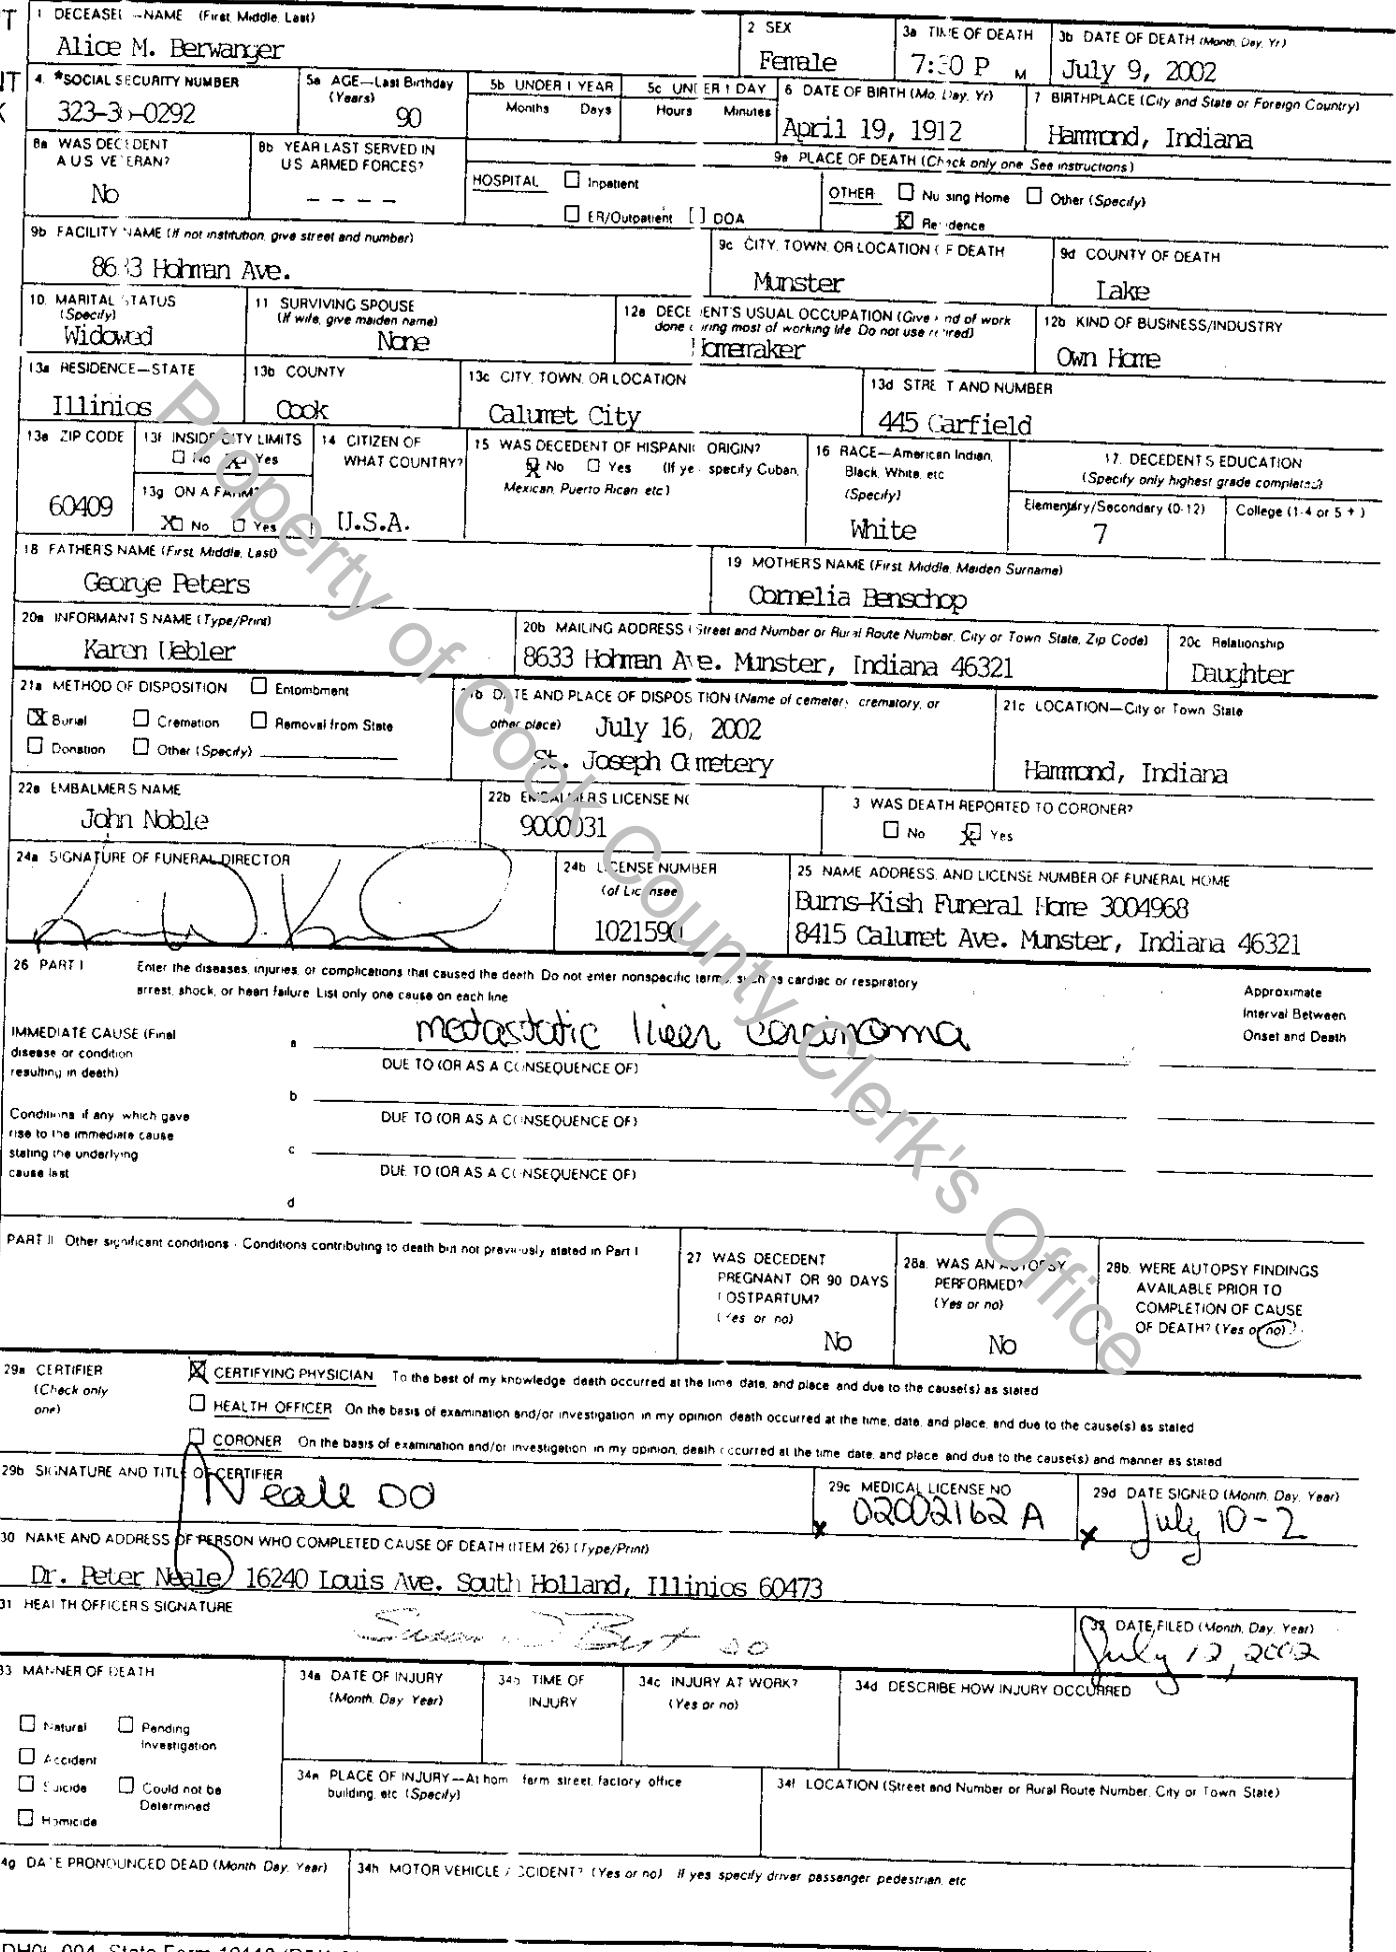 1 DECEASED—NAME (First, Middle, Last)
Alice M. Berwanger
2 SEX
Female
3a TIME OF DEATH
7:30 P M
3b DATE OF DEATH (Month, Day, Yr)
July 9, 2002
4. *SOCIAL SECURITY NUMBER
5a AGE—Last Birthday
(Years)
90
5b UNDER 1 YEAR
Months Days
5c UNDER 1 DAY
Hours Minutes
6 DATE OF BIRTH (Mo, Day, Yr)
April 19, 1912
7 BIRTHPLACE (City and State or Foreign Country)
Hammond, Indiana
8a WAS DECEDENT
A US VETERAN?
No
8b YEAR LAST SERVED IN
US ARMED FORCES?
- - - -
9a PLACE OF DEATH (Check only one See instructions)
HOSPITAL Inpatient
ER/Outpatient [ ] DOA
OTHER Nursing Home Other (Specify)
X Residence
9b FACILITY NAME (If not institution, give street and number)
8633 Hohman Ave.
9c CITY, TOWN, OR LOCATION OF DEATH
Munster
9d COUNTY OF DEATH
Lake
10. MARITAL STATUS
(Specify)
Widowed
11 SURVIVING SPOUSE
(If wife, give maiden name)
None
12a DECEDENT'S USUAL OCCUPATION (Give kind of work
done during most of working life Do not use retired)
Homemaker
12b KIND OF BUSINESS/INDUSTRY
Own Home
13a RESIDENCE—STATE
Illinios
13b COUNTY
Cook
13c CITY, TOWN, OR LOCATION
Calumet City
13d STREET AND NUMBER
445 Garfield
13e ZIP CODE
60409
13f INSIDE CITY LIMITS
No X Yes
13g ON A FARM?
X No Yes
14 CITIZEN OF
WHAT COUNTRY?
U.S.A.
15 WAS DECEDENT OF HISPANIC ORIGIN?
X No Yes (If yes specify Cuban,
Mexican, Puerto Rican etc)
16 RACE—American Indian,
Black, White, etc
(Specify)
White
17. DECEDENT'S EDUCATION
(Specify only highest grade completed)
Elementary/Secondary (0-12)
7
College (1-4 or 5 + )
18 FATHER'S NAME (First, Middle, Last)
George Peters
19 MOTHER'S NAME (First, Middle, Maiden Surname)
Cornelia Benschop
20a INFORMANT'S NAME (Type/Print)
Karen Uebler
20b MAILING ADDRESS (Street and Number or Rural Route Number, City or Town State, Zip Code)
8633 Hohman Ave. Munster, Indiana 46321
20c Relationship
Daughter
21a METHOD OF DISPOSITION Entombment
X Burial Cremation Removal from State
Donation Other (Specify)
21b DATE AND PLACE OF DISPOSITION (Name of cemetery, crematory, or
other place) July 16, 2002
St. Joseph Cemetery
21c LOCATION—City or Town State
Hammond, Indiana
22a EMBALMER'S NAME
John Noble
22b EMBALMER'S LICENSE NO
9000031
3 WAS DEATH REPORTED TO CORONER?
No X Yes
24a SIGNATURE OF FUNERAL DIRECTOR
24b LICENSE NUMBER
(of Licensee)
1021590
25 NAME ADDRESS, AND LICENSE NUMBER OF FUNERAL HOME
Burns-Kish Funeral Home 3004968
8415 Calumet Ave. Munster, Indiana 46321
26 PART I Enter the diseases, injuries, or complications that caused the death Do not enter nonspecific terms, such as cardiac or respiratory
arrest, shock, or heart failure List only one cause on each line
Approximate
Interval Between
Onset and Death
IMMEDIATE CAUSE (Final
disease or condition
resulting in death)
a metastatic liver carcinoma
DUE TO (OR AS A CONSEQUENCE OF)
b
DUE TO (OR AS A CONSEQUENCE OF)
Conditions if any which gave
rise to the immediate cause
stating the underlying
cause last
c
DUE TO (OR AS A CONSEQUENCE OF)
d
PART II Other significant conditions - Conditions contributing to death but not previously stated in Part I
27 WAS DECEDENT
PREGNANT OR 90 DAYS
POSTPARTUM?
(Yes or no)
No
28a. WAS AN AUTOPSY
PERFORMED?
(Yes or no)
No
28b. WERE AUTOPSY FINDINGS
AVAILABLE PRIOR TO
COMPLETION OF CAUSE
OF DEATH? (Yes or no)
29a CERTIFIER
(Check only
one)
X CERTIFYING PHYSICIAN To the best of my knowledge death occurred at the time date, and place and due to the cause(s) as stated
HEALTH OFFICER On the basis of examination and/or investigation in my opinion death occurred at the time, date, and place, and due to the cause(s) as stated
CORONER On the basis of examination and/or investigation in my opinion, death occurred at the time date, and place and due to the cause(s) and manner as stated
29b SIGNATURE AND TITLE OF CERTIFIER
Neale DO
29c MEDICAL LICENSE NO
x 02002162 A
29d DATE SIGNED (Month, Day, Year)
x July 10-2
30 NAME AND ADDRESS OF PERSON WHO COMPLETED CAUSE OF DEATH (ITEM 26) (Type/Print)
Dr. Peter Neale 16240 Louis Ave. South Holland, Illinios 60473
31 HEALTH OFFICER'S SIGNATURE
Susan Best DO
32 DATE FILED (Month, Day, Year)
July 12, 2002
33 MANNER OF DEATH
Natural Pending
Investigation
Accident
Suicide Could not be
Determined
Homicide
34a DATE OF INJURY
(Month, Day Year)
34b TIME OF
INJURY
34c INJURY AT WORK?
(Yes or no)
34d DESCRIBE HOW INJURY OCCURRED
34e PLACE OF INJURY—At home farm street, factory office
building, etc (Specify)
34f LOCATION (Street and Number or Rural Route Number, City or Town State)
4g DATE PRONOUNCED DEAD (Month Day, Year)
34h MOTOR VEHICLE ACCIDENT? (Yes or no) If yes specify driver passenger pedestrian, etc
Property of Cook County Clerk's Office